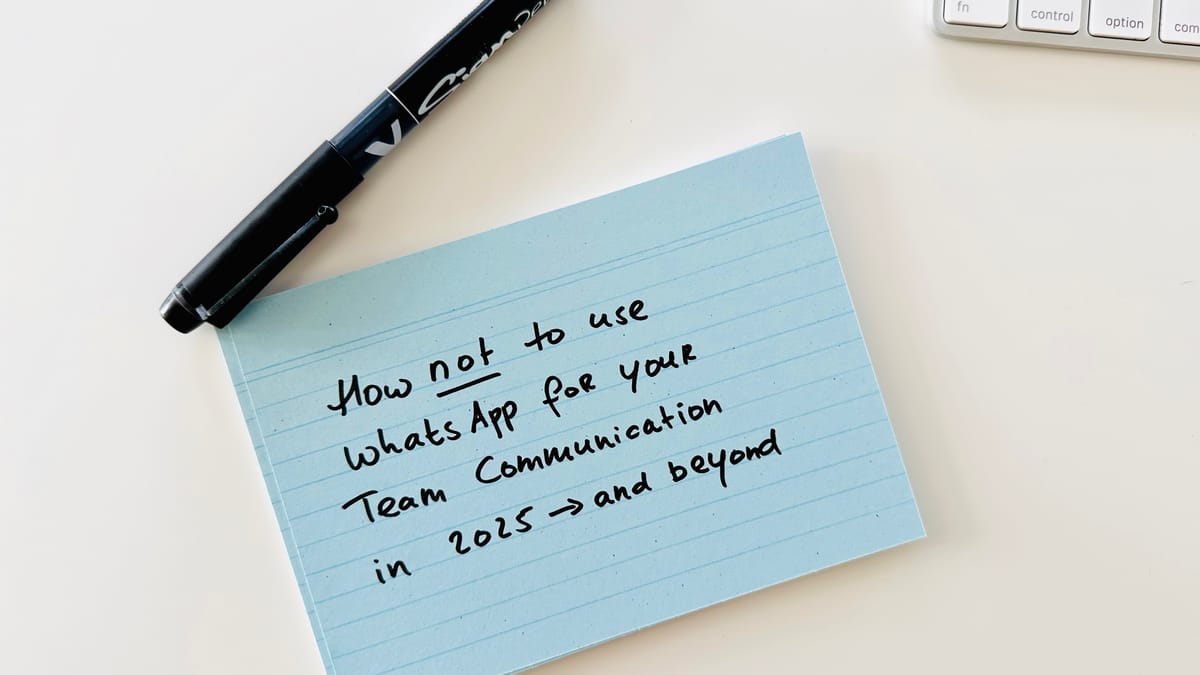 fn
control
option
com
V Sign Pen
How not to use
WhatsApp for your
Team Communication
in 2025 → and beyond